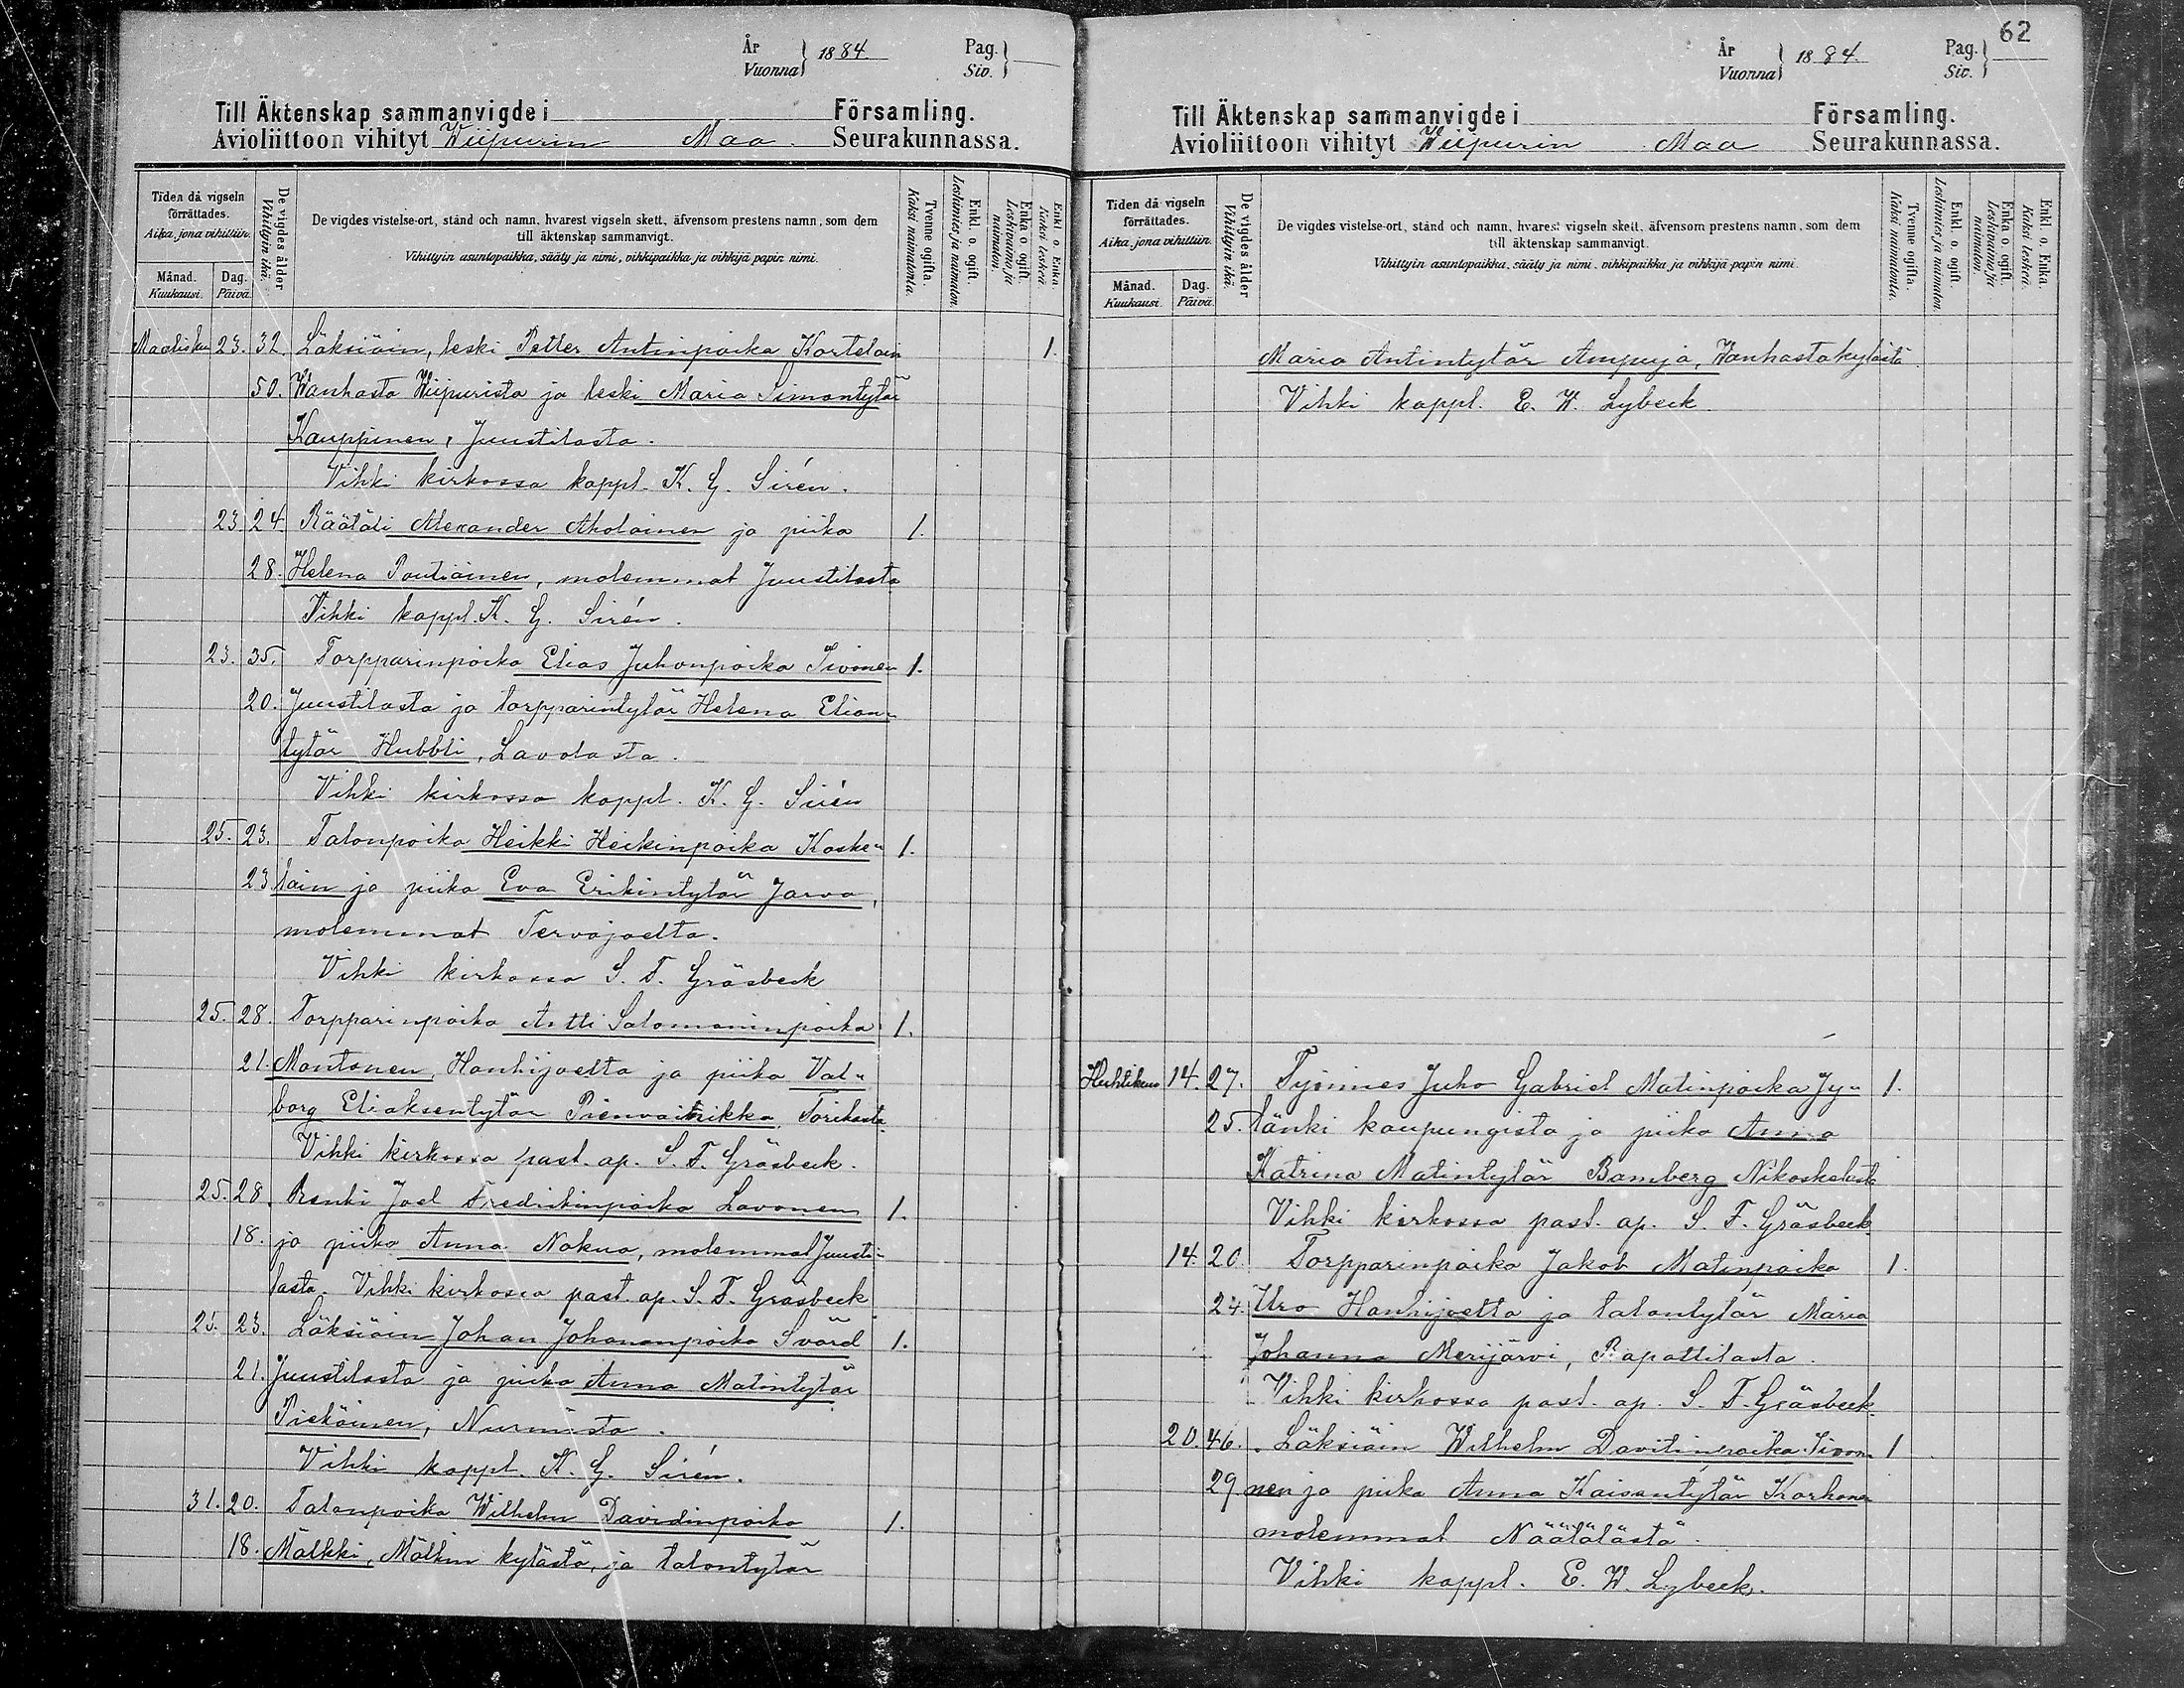 År
Vuonna } 1884.
Pag.
Siv. }
Till Äktenskap sammanvigde i Församling.
Avioliittoon vihityt Wiipurin Maa Seurakunnassa.
Tiden då vigseln förrättades.
Aika, jona vihittiin.
Månad.
Kuukausi.
Dag.
Päivä.
De vigdes ålder
Vihittyin ikä.
De vigdes vistelse-ort, stånd och namn, hvarest vigseln skett, äfvensom prestens namn, som dem
till äktenskap sammanvigt.
Vihittyin asuntopaikka, sääty ja nimi, vihkipaikka ja vihkijä papin nimi.
Tvenne ogifta.
Kaksi naimatonta.
Enkl. o. ogift.
Leskimies ja naimaton.
Enka o. ogift.
Leskivaimo ja naimaton.
Enkl. o. Enka.
Kaksi leskeä.
Maalisku 23. 32. Läksiäin, leski Petter Antinpoika Kortelain 1.
50. Wanhasta Wiipurista ja leski Maria Simontytär
Kauppinen, Juustilasta.
Vihki kirkossa kappl. K. G. Sirén.
23 24 Räätäli Alexander Aholainen ja piika 1.
28. Helena Poutiainen, molemmat Juustilasta
Vihki kappl. K. G. Sirén.
23. 35. Torpparinpoika Elias Juhonpoika Sivonen 1.
20. Juustilasta ja torpparintytär Helena Elian-
tytär Hubbli, Lavolasta.
Vihki kirkossa kappl. K. G. Sirén
25. 23. Talonpoika Heikki Heikinpoika Koske- 1.
23 lain ja piika Eva Erikintytär Jarva,
molemmat Tervajoelta.
Vihki kirkossa S. F. Gräsbeck
25. 28. Torpparinpoika Antti Salomoninpoika 1.
21. Montonen, Hanhijoelta ja piika Val-
borg Eliaksentytär Pienvaitrikka,
Vihki kirkossa past. ap. S. F. Gräsbeck.
25. 28. Renki Joel Fredrikinpoika Lavonen 1.
18. ja piika Anna Nokua, molemmat Juusti-
lasta. Vihki kirkossa past. ap. S. F. Gräsbeck
25. 23. Läksiäin Johan Johananpoika Svärd 1.
21. Juustilasta ja piika Anna Matintytär
Piekäinen, Nurmista.
Vihki kappl. K. G. Sirén.
31. 20. Talonpoika Wilhelm Davidinpoika 1.
18. Mälkki, Mälkin kylästä, ja talontytär
62
År
Vuonna } 1884.
Pag.
Siv. }
Till Äktenskap sammanvigde i Församling.
Avioliittoon vihityt Wiipurin Maa Seurakunnassa.
Tiden då vigseln förrättades.
Aika, jona vihittiin.
Månad.
Kuukausi.
Dag.
Päivä.
De vigdes ålder
Vihittyin ikä.
De vigdes vistelse-ort, stånd och namn, hvarest vigseln skett, äfvensom prestens namn, som dem
till äktenskap sammanvigt.
Vihittyin asuntopaikka, sääty ja nimi, vihkipaikka ja vihkijä papin nimi.
Tvenne ogifta.
Kaksi naimatonta.
Enkl. o. ogift.
Leskimies ja naimaton.
Enka o. ogift.
Leskivaimo ja naimaton.
Enkl. o. Enka.
Kaksi leskeä.
Maria Antintytär Ampuja, Wanhastakylästä
Vihki kappl. E. W. Lybeck
Huhtikuu 14. 27. Työmies Juho Gabriel Matinpoika Jy- 1.
25. länki kaupungista ja piika Anna
Katrina Matintytär Bamberg Nikoskelasta
Vihki kirkossa past. ap. S. F. Gräsbeck.
14. 20. Torpparinpoika Jakob Matinpoika 1.
24. Uro Hanhijoelta ja talontytär Maria
Johanna Merijärvi, Rapattilasta.
Vihki kirkossa past. ap. S. F. Gräsbeck.
20. 46. Läksiäin Wilhelm Davitinpoika Sivo- 1
29 nen ja piika Anna Kaisantytär Korhonen
molemmat Näätälästä.
Vihki kappl. E. W. Lybeck.